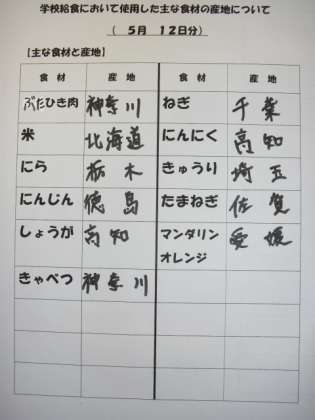 学校給食において使用した主な食材の産地について
（ 5月 12日分）
【主な食材と産地】
食材 産地 食材 産地
ぶたひき肉 神奈川 ねぎ 千葉
米 北海道 にんにく 高知
にら 栃木 きゅうり 埼玉
にんじん 徳島 たまねぎ 佐賀
しょうが 高知 マンダリン 愛媛
オレンジ
きゃべつ 神奈川